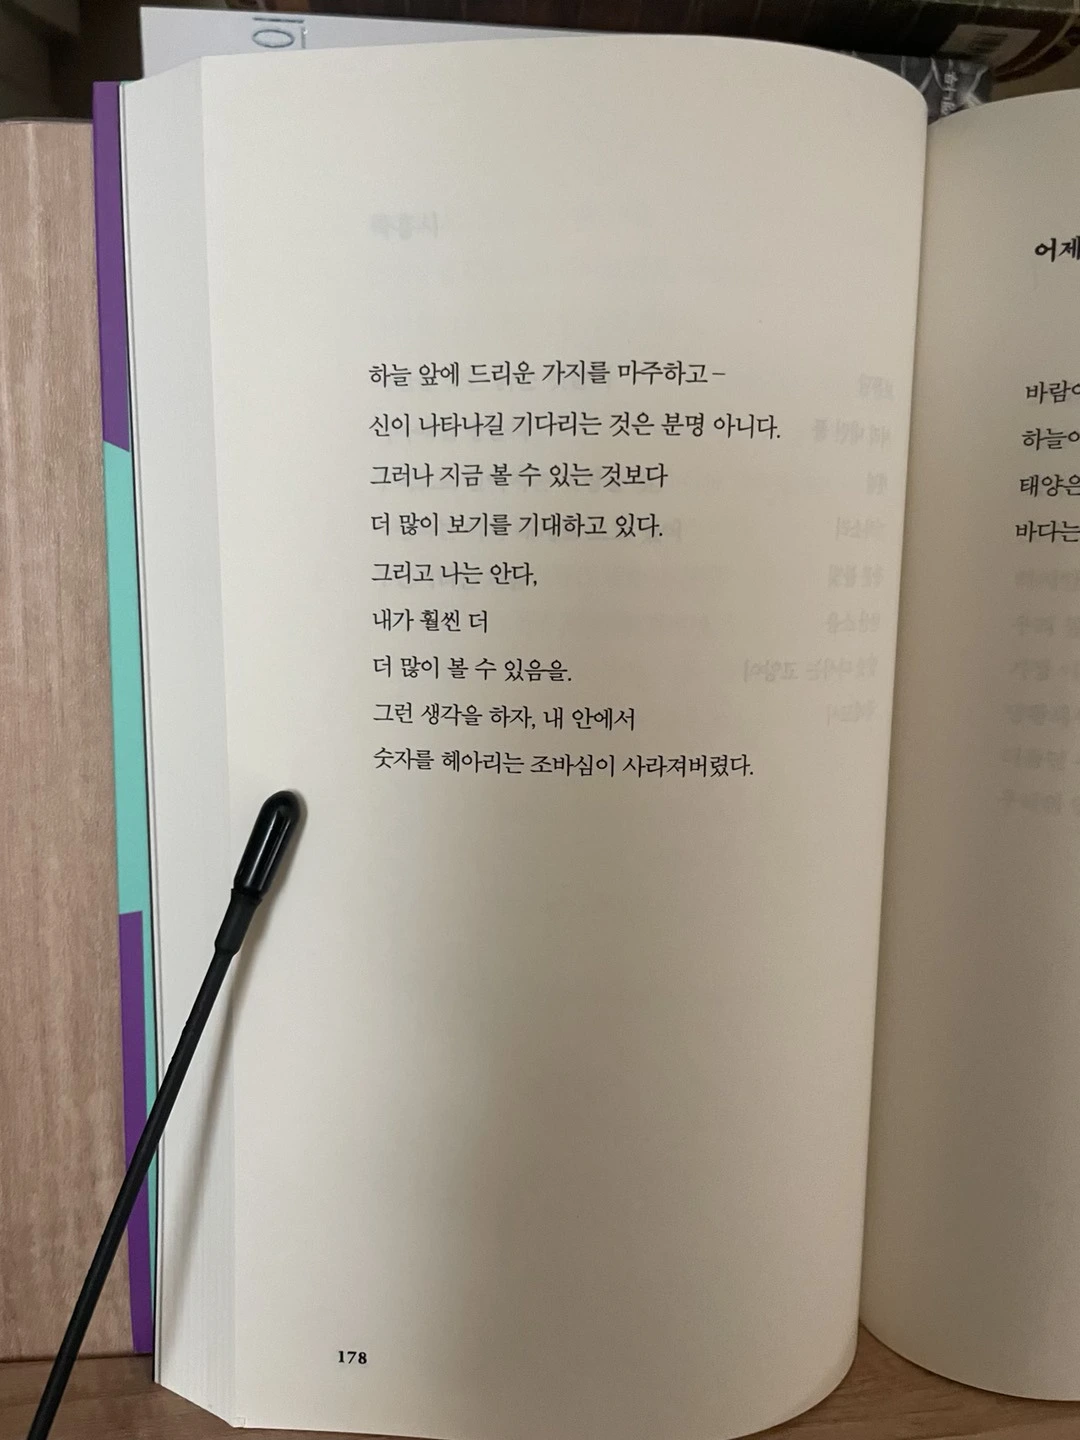 하늘 앞에 드리운 가지를 마주하고–
신이 나타나길 기다리는 것은 분명 아니다.
그러나 지금 볼 수 있는 것보다
더 많이 보기를 기대하고 있다.
그리고 나는 안다,
내가 훨씬 더
더 많이 볼 수 있음을.
그런 생각을 하자, 내 안에서
숫자를 헤아리는 조바심이 사라져버렸다.
178
어제
바람이
하늘이
태양은
바다는